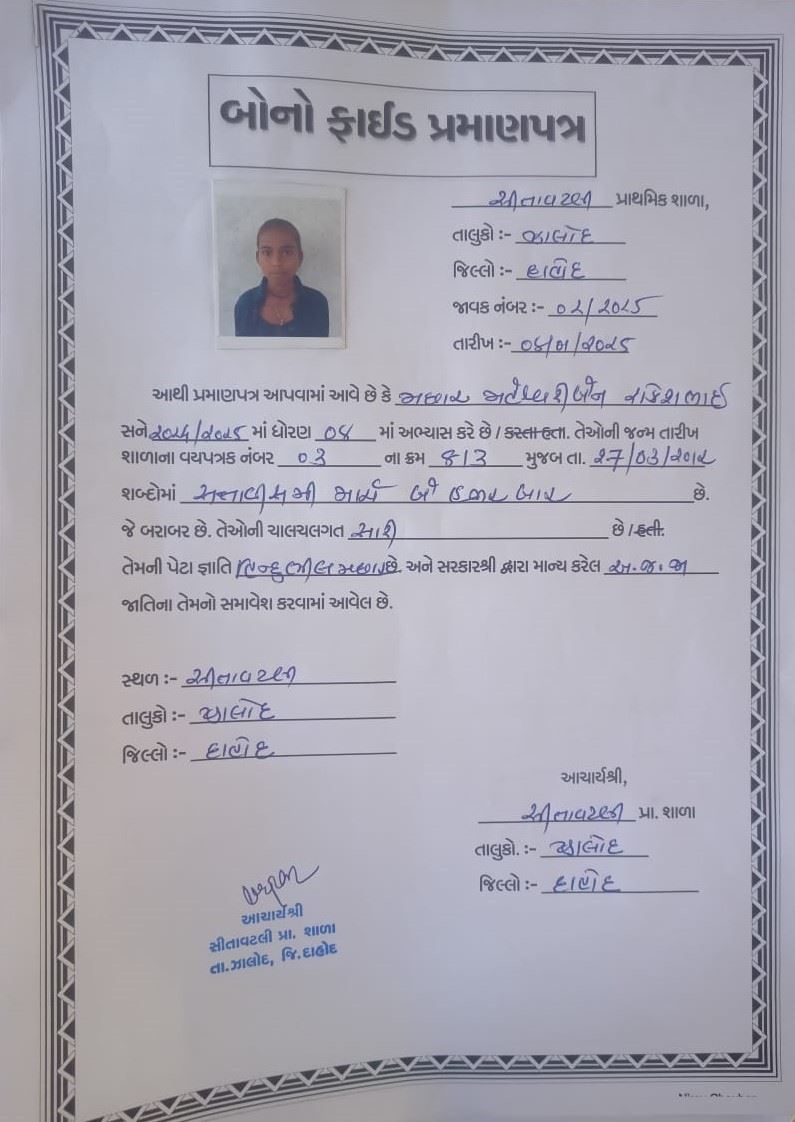 બોનો ફાઈડ પ્રમાણપત્ર
સીતાવટલી પ્રાથમિક શાળા,
તાલુકો :- ઝાલોદ
જિલ્લો :- દાહોદ
જાવક નંબર :- ૦૨/૨૦૨૫
તારીખ :- ૦૪/૦૧/૨૦૨૫
આથી પ્રમાણપત્ર આપવામાં આવે છે કે મછાર રાકેશભાઈ
સને ૨૦૨૪/૨૦૨૫ માં ધોરણ ૦૪ માં અભ્યાસ કરે છે / કરતા હતા. તેઓની જન્મ તારીખ
શાળાના વયપત્રક નંબર ૦૩ ના ક્રમ ૪૧૩ મુજબ તા. ૨૭/૦૩/૨૦૧૨
શબ્દોમાં સત્તાવીસમી માર્ચ બે હજાર બાર છે.
જે બરાબર છે. તેઓની ચાલચલગત સારી છે / હતી.
તેમની પેટા જ્ઞાતિ હિન્દુ ભીલ મછાર છે. અને સરકારશ્રી દ્વારા માન્ય કરેલ અ.જ.જા
જાતિના તેમનો સમાવેશ કરવામાં આવેલ છે.
સ્થળ :- સીતાવટલી
તાલુકો :- ઝાલોદ
જિલ્લો :- દાહોદ
આચાર્યશ્રી,
સીતાવટલી પ્રા. શાળા
તાલુકો. :- ઝાલોદ
જિલ્લો :- દાહોદ
આચાર્યશ્રી
સીતાવટલી પ્રા. શાળા
તા.ઝાલોદ, જિ.દાહોદ